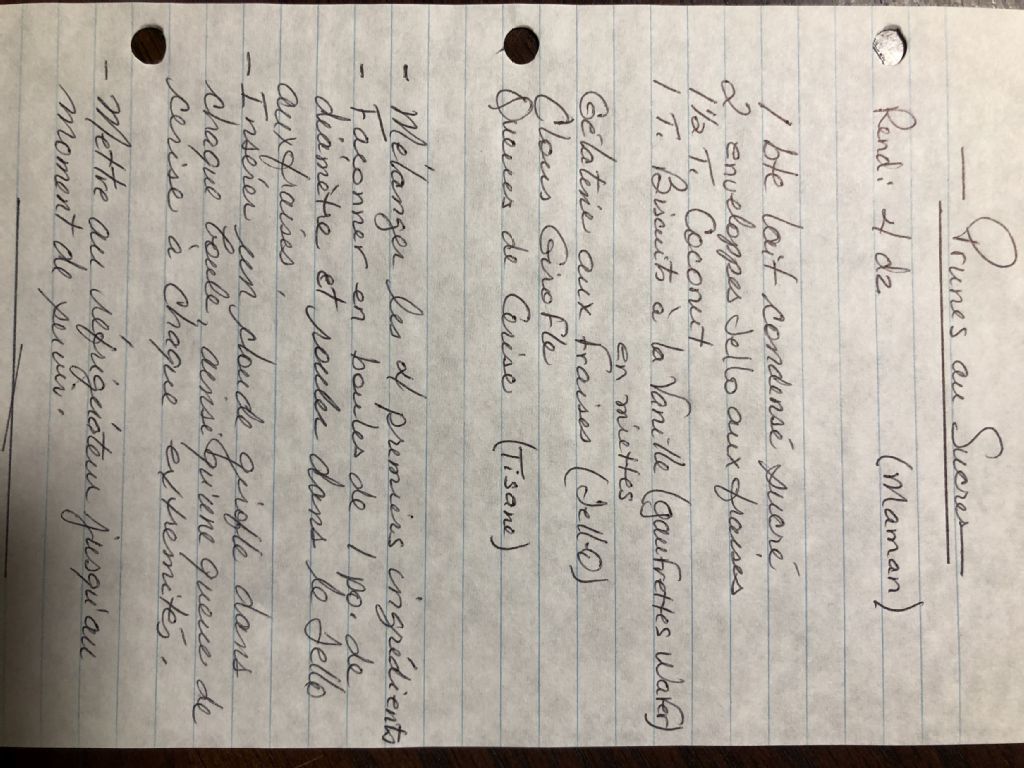 — Prunes au Sucres
Rend: 4 dz (Maman)
1 bte lait condensé sucré
2 enveloppes Jello aux fraises
1 1/2 T. Coconut
1 T. Biscuits à la Vanille (gaufrettes Wafer)
en miettes
Gélatine aux fraises (Jello)
Clous Girofle
Queues de Cerise (Tisane)
- Mélanger les 4 premiers ingrédients
- Façonner en boules de 1 po. de
diamètre et roule dans le Jello
aux fraises.
- Insérer un clou de girofle dans
chaque boule, ainsi qu'une queue de
cerise à chaque extremités.
- Mettre au réfrigérateur jusqu'au
moment de servir.